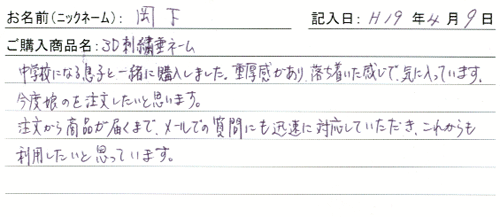 お名前(ニックネーム): 岡下 記入日: H19年4月9日
ご購入商品名: 3D刺繍垂ネーム
中学校になる息子と一緒に購入しました。重厚感があり、落ち着いた感じで、気に入っています。
今度娘のを注文したいと思います。
注文から商品が届くまで、メールでの質問にも迅速に対応していただき、これからも
利用したいと思っています。